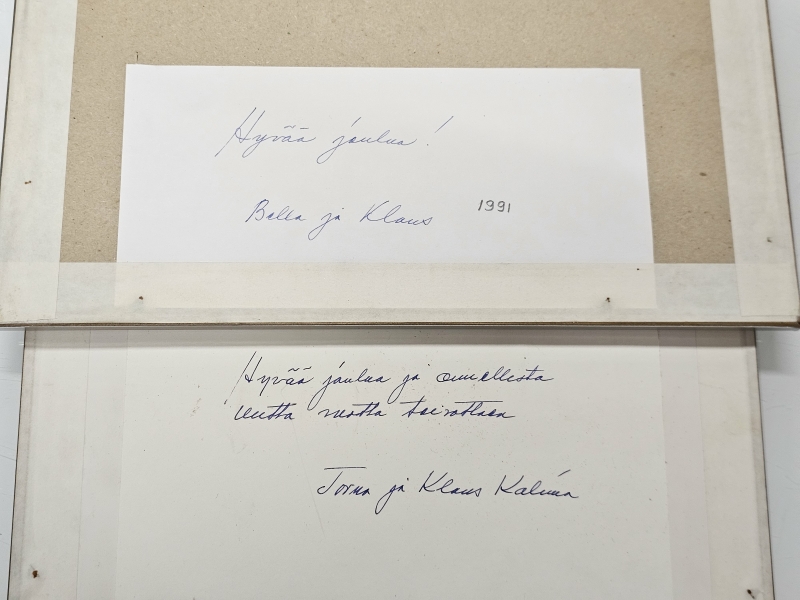 Hyvää joulua!
Bella ja Klaus 1991
Hyvää joulua ja onnellista
uutta vuotta toivottaen
ja Klaus Kalima